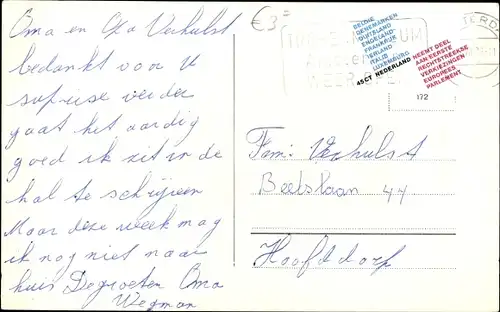 Oma en Opa Verhulst
bedankt voor u
suprise verder
gaat het aardig
goed ik zit in de
hal te schrijven
Maar deze week mag
ik nog niet naar
huis De groeten Oma
Wegman
€3,=
BELGIE
DENEMARKEN
DUITSLAND
ENGELAND
FRANKRIJK
IERLAND
ITALIE
LUXEMBURG
45CT NEDERLAND
NEEMT DEEL
AAN EERSTE
RECHTSTREEKSE
VERKIEZINGEN
EUROPEES
PARLEMENT
172
Fam: Verhulst
Beetslaan 44
Hoofddorp